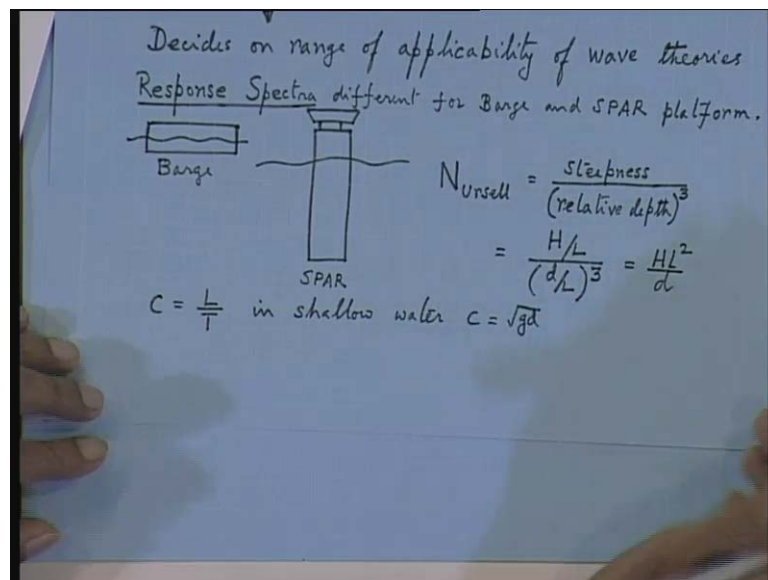 Decides on range of applicability of wave theories
Response Spectra different for Barge and SPAR platform.
Barge
SPAR
N Ursell = steepness / (relative depth)^3
= H/L / (d/L)^3 = HL^2 / d
C = L/T in shallow water C = √gd